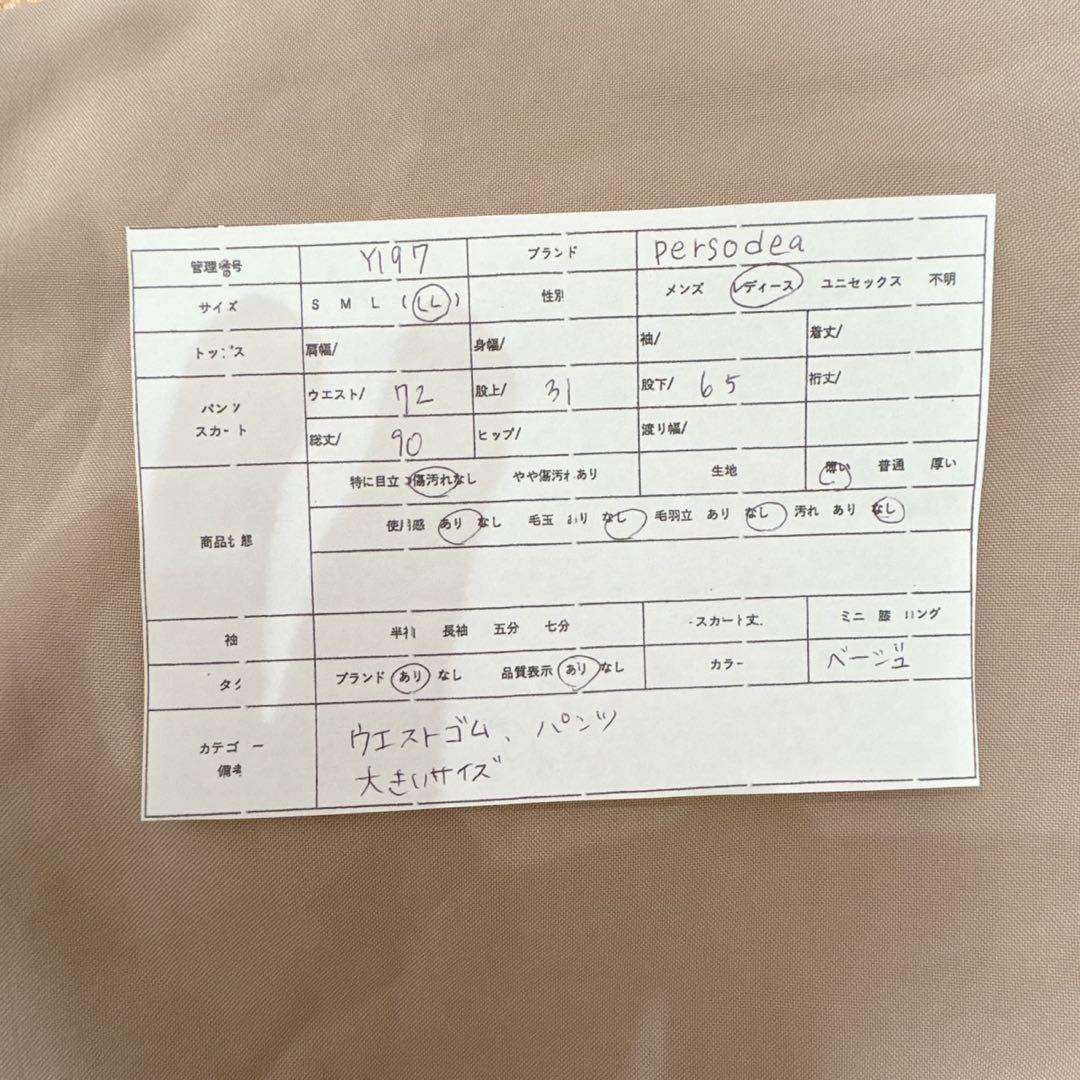 管理番号 Y197 ブランド persodea
サイズ S M L (LL) 性別 メンズ レディース ユニセックス 不明
トップス 肩幅/ 身幅/ 袖/ 着丈/
パンツ ウエスト/ 72 股上/ 31 股下/ 65 裄丈/
スカート 総丈/ 90 ヒップ/ 渡り幅/
特に目立つ傷汚れなし やや傷汚れあり 生地 薄い 普通 厚い
商品状態 使用感 あり なし 毛玉 あり なし 毛羽立 あり なし 汚れ あり なし
袖 半袖 長袖 五分 七分 スカート丈 ミニ 膝 ロング
タグ ブランド あり なし 品質表示 あり なし カラー ベージュ
カテゴリー ウエストゴム、パンツ
備考 大きいサイズ